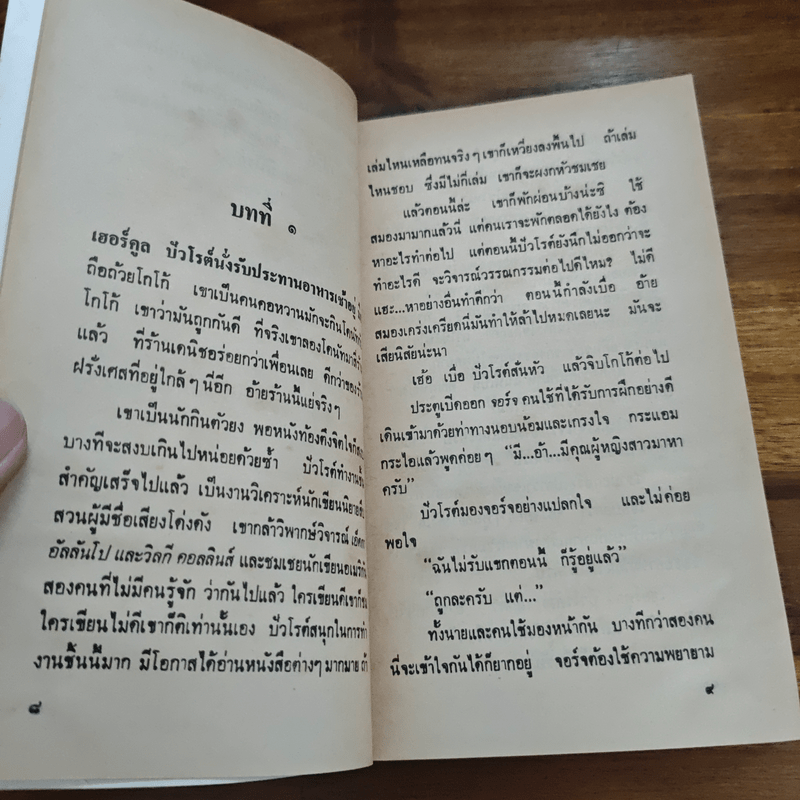 บทที่ ๑
เฮอร์คูล ปัวโรต์นั่งรับประทานอาหารเช้าอยู่
ถือถ้วยโกโก้ เขาเป็นคนคอหวานมักจะกินโดนัท
โกโก้ เขาว่ามันถูกกันดี ที่จริงเขาลองโดนัทมาสี่ร้าน
แล้ว ที่ร้านเดนิชอร่อยกว่าเพื่อนเลย ดีกว่าของร้าน
ฝรั่งเศสที่อยู่ใกล้ๆ นี่อีก อ้ายร้านนี้แย่จริงๆ
เขาเป็นนักกินตัวยง พอหนังท้องตึงจิตใจก็
บางทีจะสงบเกินไปหน่อยด้วยซ้ำ ปัวโรต์ทำงานชิ้น
สำคัญเสร็จไปแล้ว เป็นงานวิเคราะห์นักเขียนนิยายสืบ
สวนผู้มีชื่อเสียงโด่งดัง เขากล้าวิพากษ์วิจารณ์ เอ็ดการ์
อัลลันโป และวิลกี คอลลินส์ และชมเชยนักเขียนอเมริกัน
สองคนที่ไม่มีคนรู้จัก ว่ากันไปแล้ว ใครเขียนดีเขาก็ชม
ใครเขียนไม่ดีเขาก็ติเท่านั้นเอง ปัวโรต์สนุกในการทำ
งานชิ้นนี้มาก มีโอกาสได้อ่านหนังสือต่างๆ มากมาย ถ้า
๘
เล่มไหนเหลือทนจริงๆ เขาก็เหวี่ยงลงพื้นไป ถ้าเล่ม
ไหนชอบ ซึ่งมีไม่กี่เล่ม เขาก็จะผงกหัวชมเชย
แล้วตอนนี้ล่ะ เขาก็พักผ่อนบ้างน่ะซิ ใช้
สมองมามากแล้วนี่ แต่คนเราจะพักตลอดได้ยังไง ต้อง
หาอะไรทำต่อไป แต่ตอนนี้ปัวโรต์ยังนึกไม่ออกว่าจะ
ทำอะไรดี จะวิจารณ์วรรณกรรมต่อไปดีไหม? ไม่ดี
แฮะ...หาอย่างอื่นทำดีกว่า ตอนนี้กำลังเบื่อ อ้าย
สมองเคร่งเครียดนี่มันทำให้ล้าไปหมดเลยนะ มันจะ
เสียนิสัยน่ะนา
เฮ้อ เบื่อ ปัวโรต์สั่นหัว แล้วจิบโกโก้ต่อไป
ประตูเปิดออก จอร์จ คนใช้ที่ได้รับการฝึกอย่างดี
เดินเข้ามาด้วยท่าทางนอบน้อมและเกรงใจ กระแอม
กระไอแล้วพูดค่อยๆ “มี...อ้า...มีคุณผู้หญิงสาวมาหา
ครับ”
ปัวโรต์มองจอร์จอย่างแปลกใจ และไม่ค่อย
พอใจ
“ฉันไม่รับแขกตอนนี้ ก็รู้อยู่แล้ว”
“ถูกละครับ แต่...”
ทั้งนายและคนใช้มองหน้ากัน บางทีกว่าสองคน
นี่จะเข้าใจกันได้ก็ยากอยู่ จอร์จต้องใช้ความพยายาม
๙